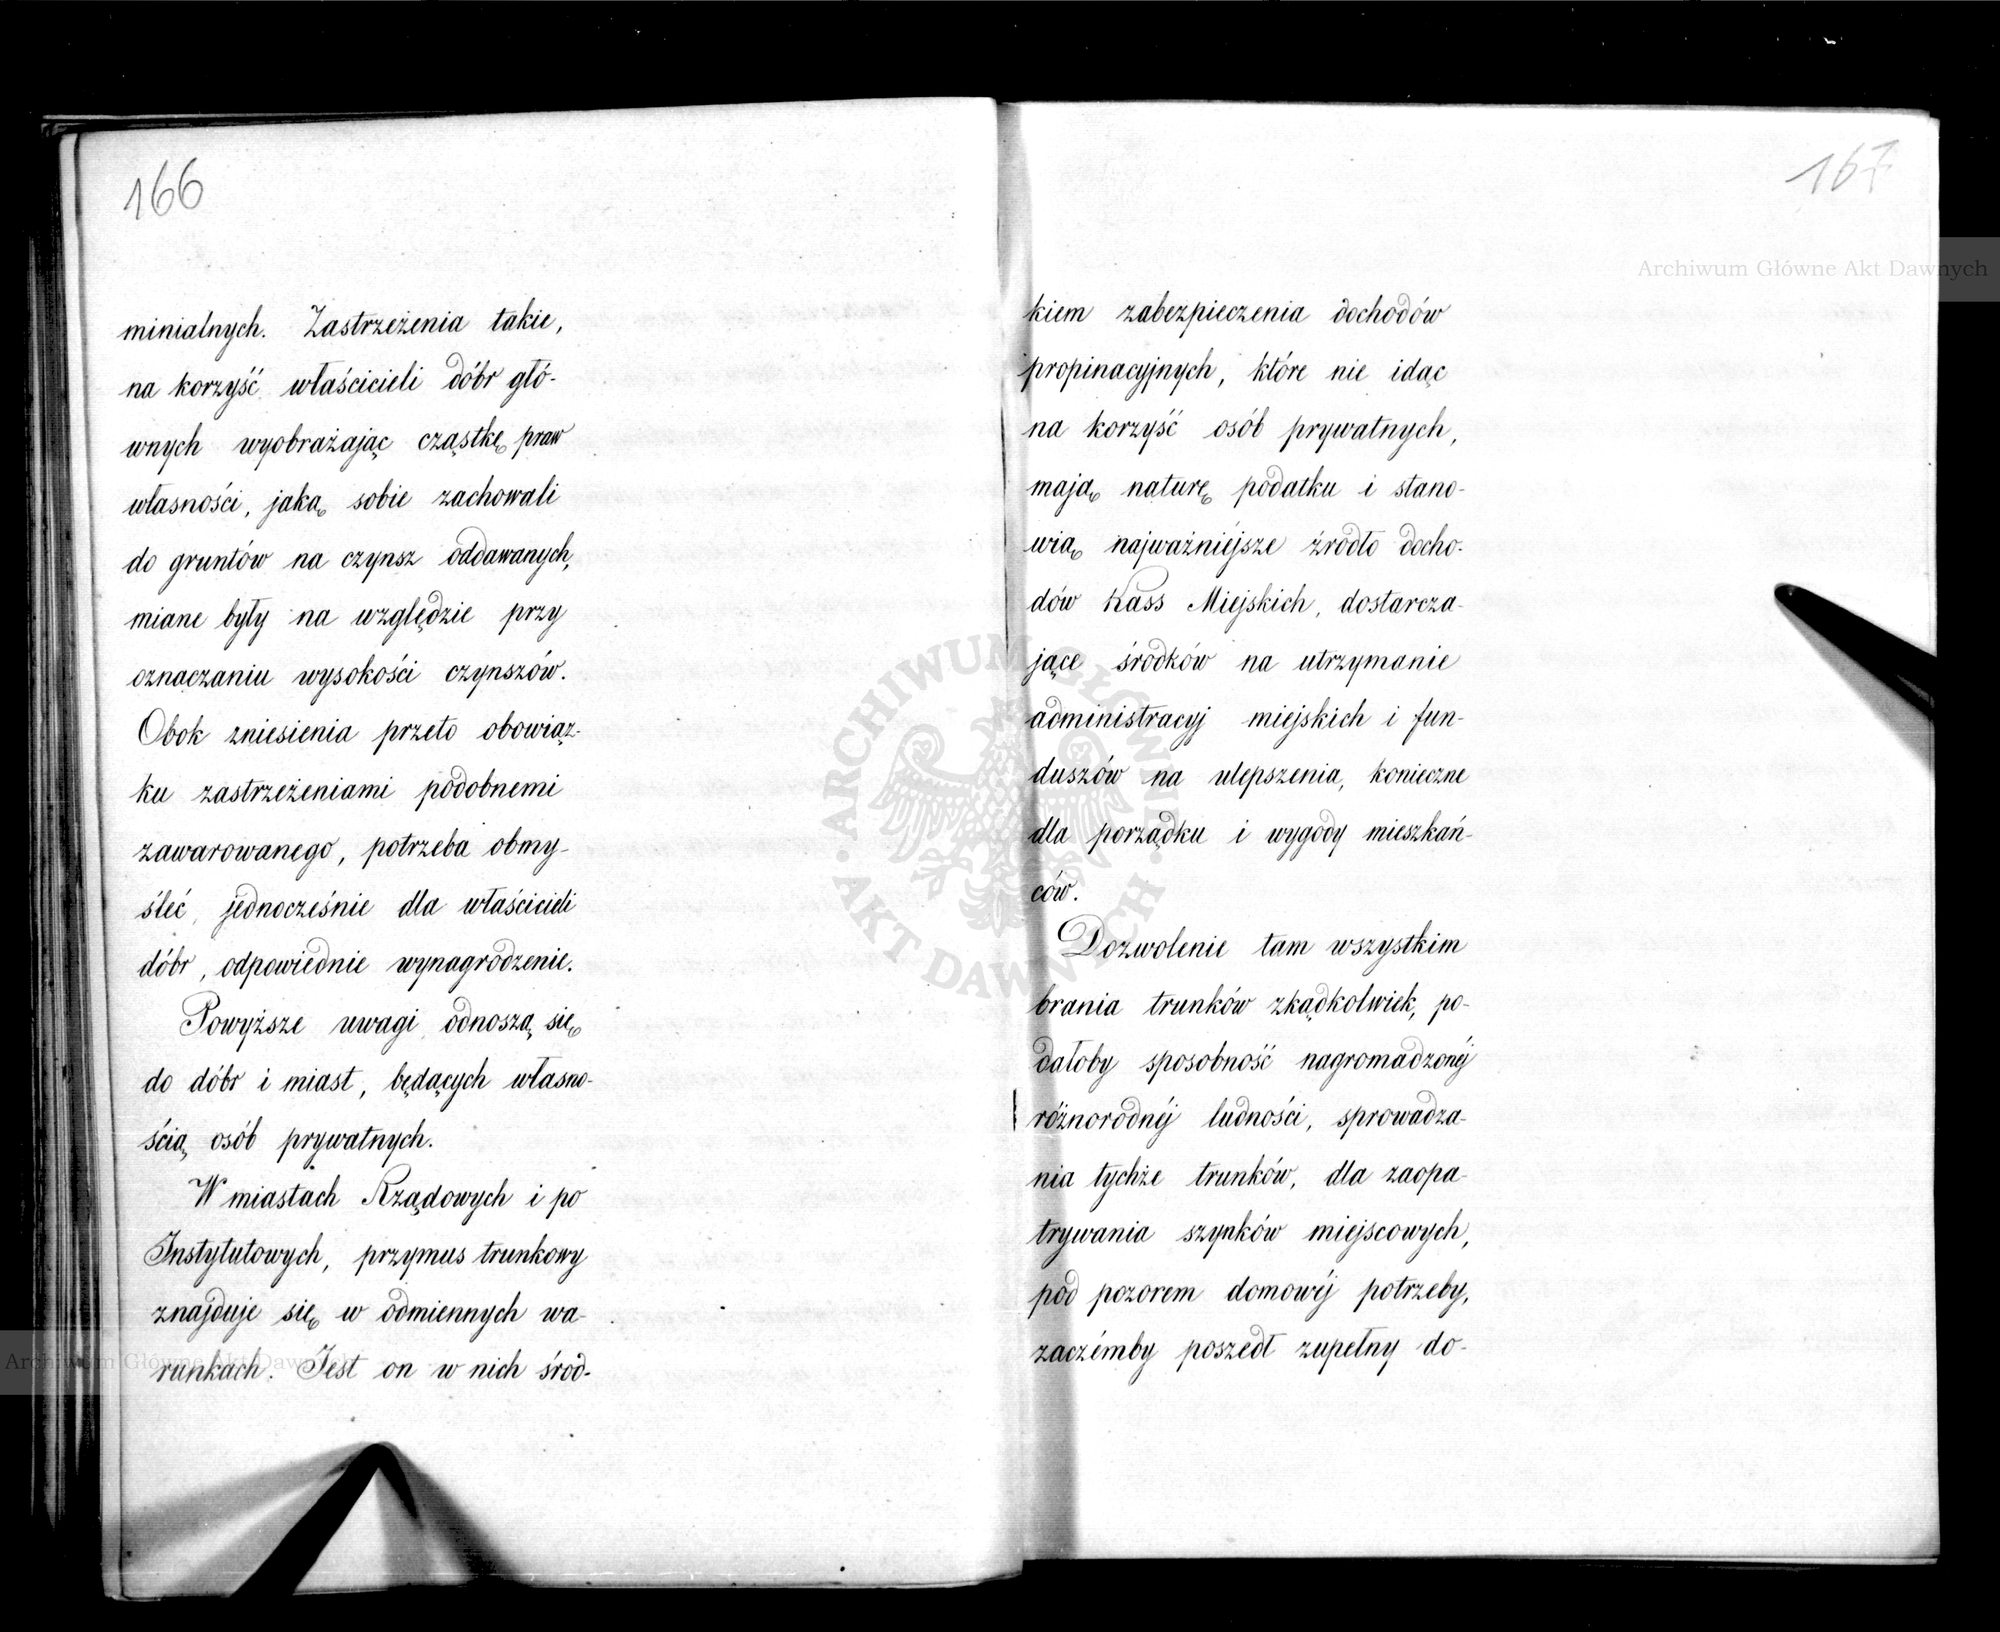 166
minialnych. Zastrzeżenia takie,
na korzyść właścicieli dóbr głó-
wnych wyobrażając cząstkę praw
własności, jaką sobie zachowali
do gruntów na czynsz oddawanych,
miane były na względzie przy
oznaczaniu wysokości czynszów.
Obok zniesienia przeto obowiąz-
ku zastrzeżeniami podobnemi
zawarowanego, potrzeba obmy-
śleć, jednocześnie dla właścicieli
dóbr, odpowiednie wynagrodzenie.
Powyższe uwagi odnoszą się
do dóbr i miast, będących własno-
ścią osób prywatnych.
W miastach Rządowych i po
Instytutowych, przymus trunkowy
znajduje się w odmiennych wa-
runkach. Jest on w nich środ-
167
kiem zabezpieczenia dochodów
propinacyjnych, które nie idąc
na korzyść osób prywatnych,
mają naturę podatku i stano-
wią najważniéjsze źródło docho-
dów Kass Miejskich, dostarcza-
jące środków na utrzymanie
administracyj miejskich i fun-
duszów na ulepszenia, konieczne
dla porządku i wygody mieszkań-
ców.
Dozwolenie tam wszystkim
brania trunków zkądkolwiek, po-
dałoby sposobność nagromadzonéj
różnorodnéj ludności, sprowadza-
nia tychże trunków, dla zaopa-
trywania szynków miejscowych,
pod pozorem domowéj potrzeby,
zaczémby poszedł zupełny do-
Archiwum Główne Akt Dawnych
Archiwum Główne Akt Dawnych
ARCHIWUM GŁÓWNE
AKT DAWNYCH